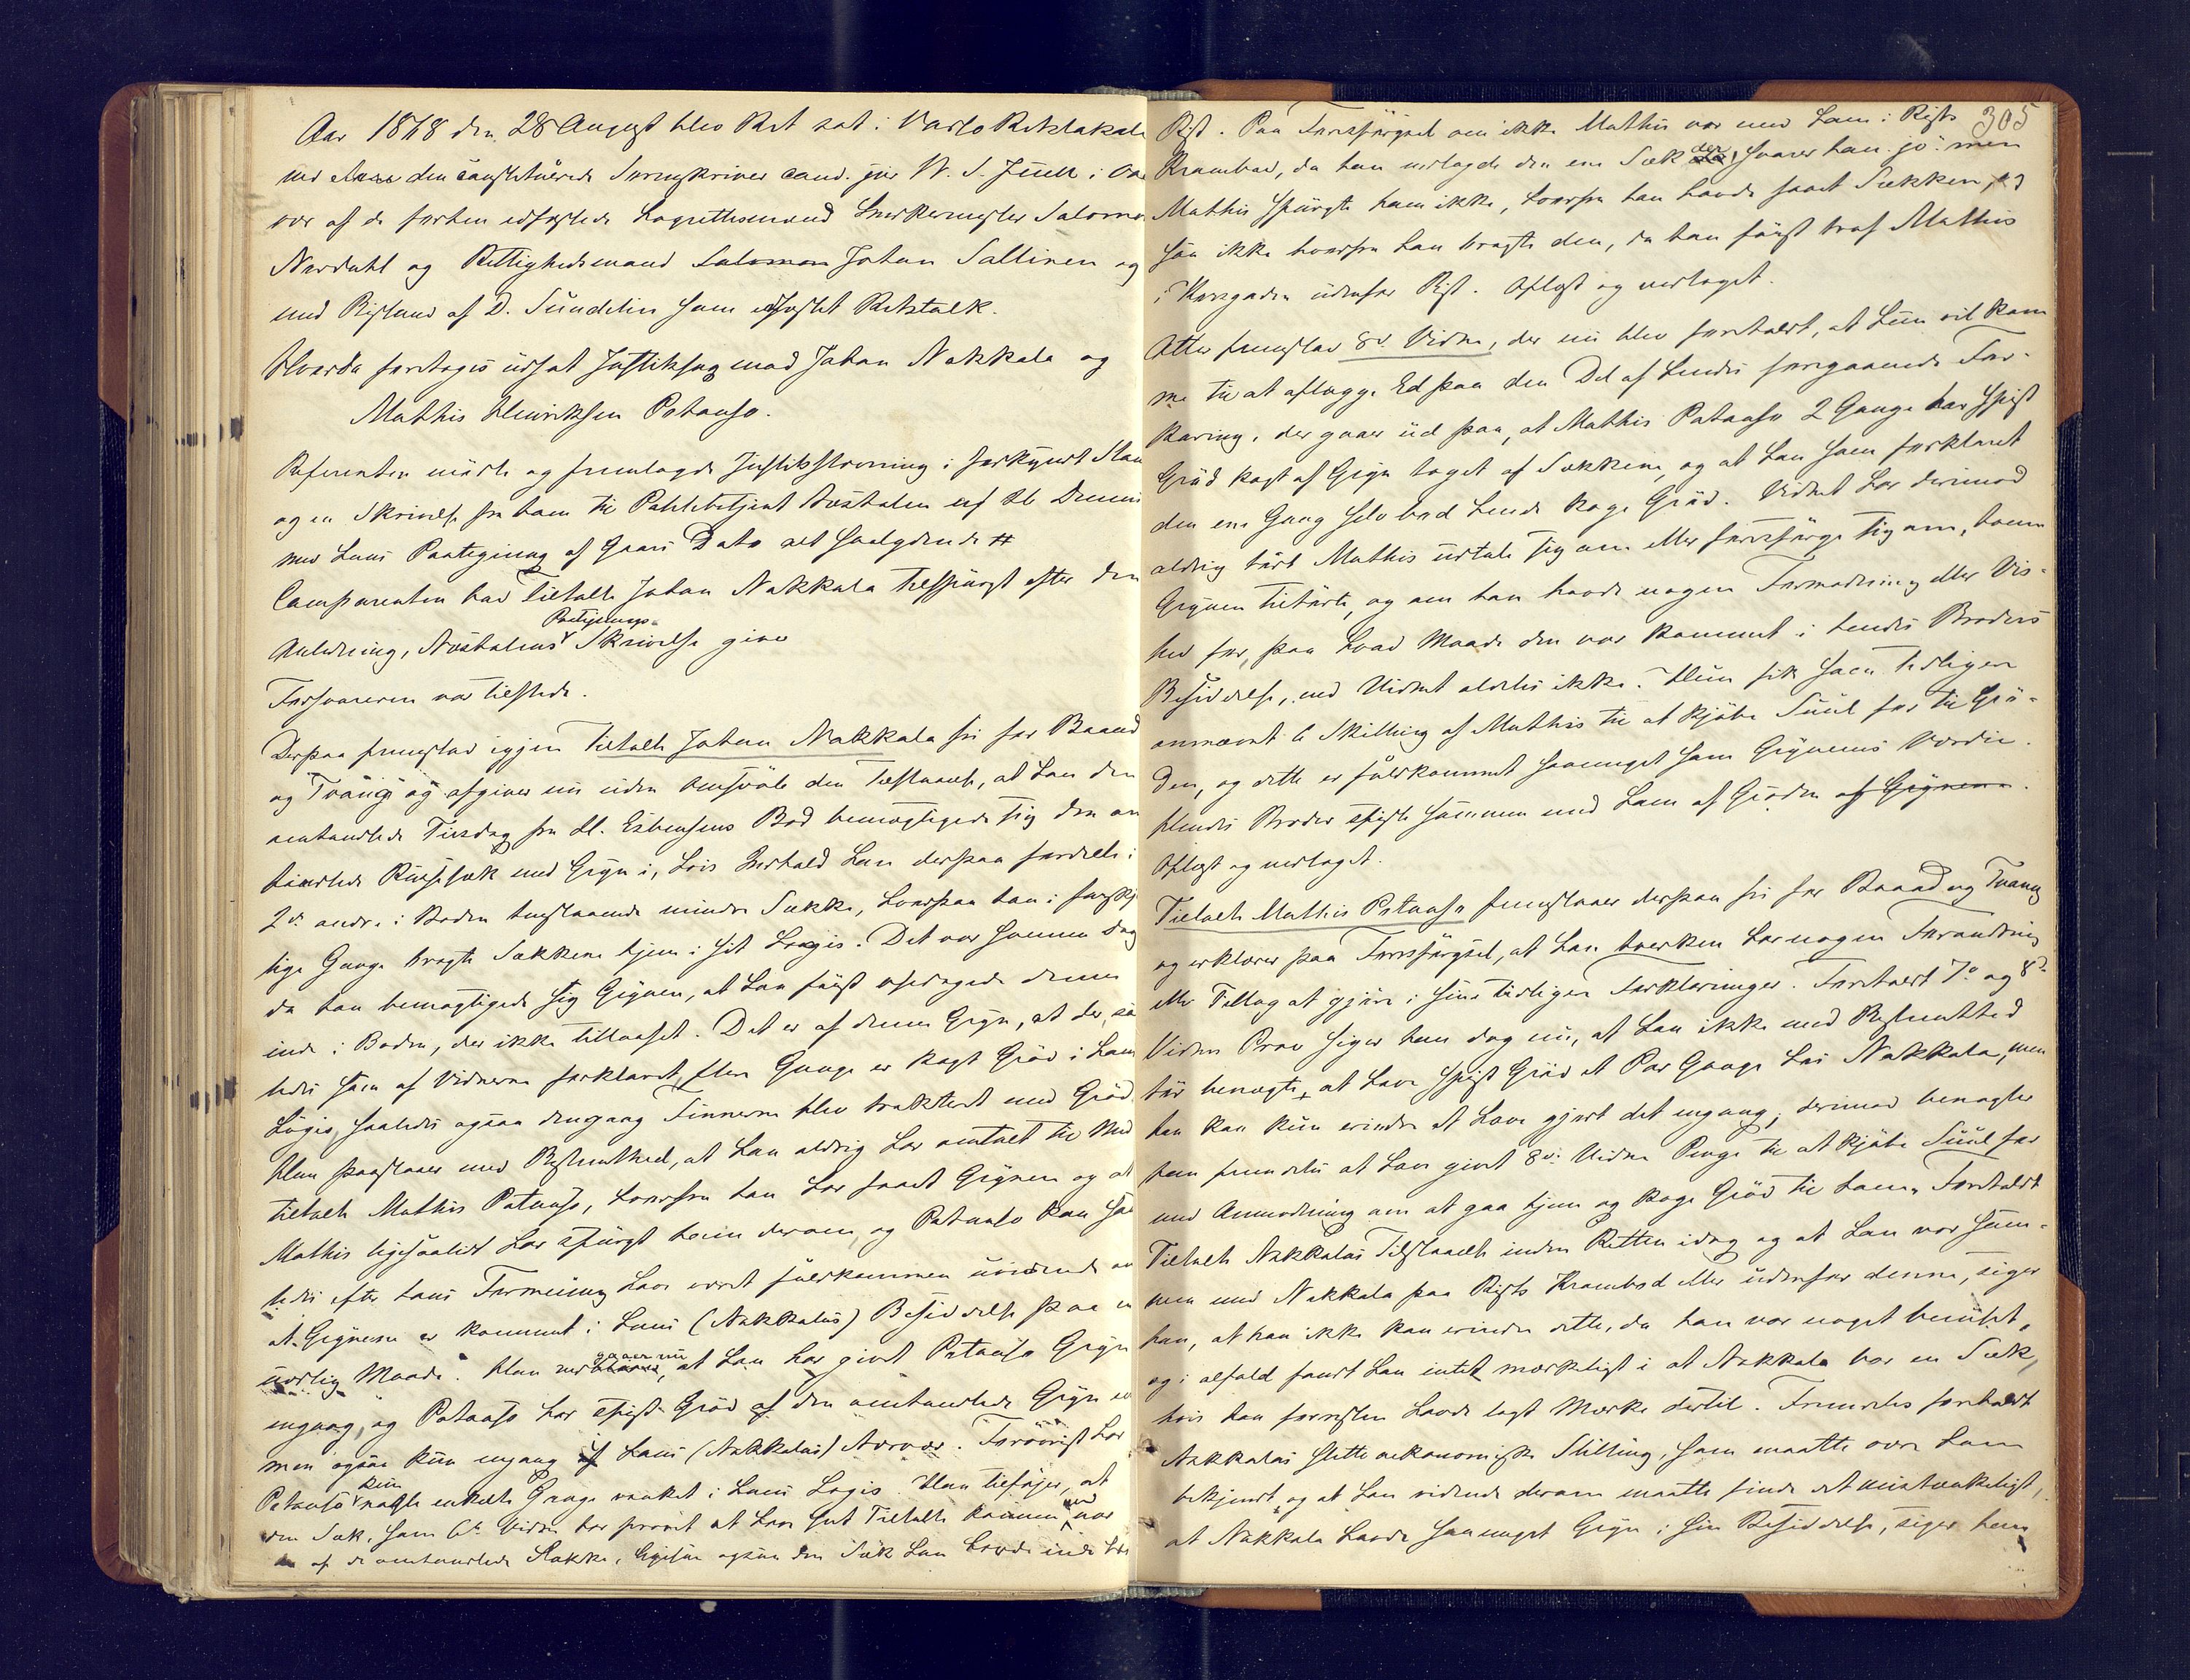 Aar 1868 den 28 August blev Ret sat i Vadsø Retslokale
ved den constituerede Sorenskriver cand. jur W. S. Juell i
var af de forhen edfæstede Lagrettesmænd Snedkermester Salomon
Nordahl og Rettighedsmand Johan Sallinen og
med Bistand af D. Sundelin som edfæstet Retstolk.
Hvorda foretoges udsat Justitssag mod Johan Nakkala og
Mathis Henriksen Pataoja.
Referenten mødte og fremlagde Justitsstevning i forkyndt Stand
og en Skrivelse fra ham til Politibetjent Avestalen af
med hans Paategning af Gaars Dato saalydende #
Comparenten bad Tiltalte Johan Nakkala tilspurgt efter den
Paategnings-
Anledning, Skrivelse giver
Forsvareren var tilstede.
Derpaa fremstod igjen Tiltalte Johan Nakkala fri for Baand
og Tvang og afgiver nu uden Omsvøb den Tilstaaelse, at han den
omhandlede Tirsdag fra Hl. Esbensens Bod bemægtigede sig den om
handlede Russesæk med Gryn i, hvis Indhold han derpaa fordelte i
2de andre i Boden henstaaende mindre Sække, hvorpaa han i forskj
lige Gange bragte Sækkene hjem i sit Logis. Det var samme Dag
da han bemægtigede sig Grynen, at han først opdagede denne
inde i Boden, der ikke tillaaset. Det er af denne Gryn, at der, saa
ledes som af Vidnerne forklaret, flere Gange er kogt Grød i hans
Logis, saaledes ogsaa dengang Finnerne blev trakteret med Grød
Han paastaaer med Bestemthed, at han aldrig har omtalt til Med
tiltalte Mathis Pataoja, hvorfra han har faaet Grynen og at
Mathis ligesaalidt har spurgt ham derom, og Pataoja kan saa
ledes efter hans Formening have været fuldkommen uvidende om
at Grynene er kommet i hans (Nakkalas) Besiddelse paa en
uærlig Maade. Han
gaaer nu
at han har givet Pataoja Gryn
engang, og Pataoja har spist Grød af den omhandlede Gryn en
men ogsaa kun engang i hans (Nakkalas) Nærvær. Forøvrigt har
kun
Pataoja nogle enkelte Gange vanket i hans Logis. Han tilføier, at
den Sæk, som 6te Vidne har provet at have seet Tiltalte komme med var
en af de omhandlede Sække, ligesaa ogsaa den Sæk han havde inde hos
305
Rist. Paa Forespørgsel om ikke Mathis var med ham i Rists
Krambod, da han nedlagde den ene Sæk der, svarer han jo: men
Mathis spurgte ham ikke, hvorfra han havde faaet Sækken, og
saa ikke hvorfra han bragte den, da han først traf Mathis
i Kongaden udenfor Rist. Oplæst og vedtaget.
Atter fremstod 8de Vidne, der nu blev foreholdt, at hun vil kom
me til at aflægge Ed paa den Del af hendes foregaaende For-
klaring, der gaar ud paa, at Mathis Pataoja 2 Gange har spist
Grød kogt af Gryn taget af Sækkene, og at han som forklaret
den ene Gang selv bad hende koge Grød. Vidnet har derimod
aldrig hørt Mathis udtale sig om eller forespørge sig om, hvem
Grynen tilhørte, og om han havde nogen Formodning eller Vis-
hed for, paa hvad Maade den var kommet i hendes Broders
Besiddelse, ved Vidnet aldeles ikke. Hun fik som tidligere
omnævnt 6 Skilling af Mathis til at kjøbe Suul for til Grø-
den, og dette er fuldkommet saameget som Grynenes Værdie.
Hendes Broder spiste sammen med ham af Grøden af Grynene.
Oplæst og vedtaget.
Tiltalte Mathis Pataoja fremstaaer derpaa fri for Baand og Tvang
og erklærer paa Forespørgsel, at han hverken har nogen Forandring
eller Tillæg at gjøre i sine tidligere Forklaringer. Foreholdt 7de og 8de
Vidnes Prov siger han dog nu, at han ikke med Bestemthed
tør benægte, at have spist Grød et Par Gange hos Nakkala, men
han kan kun erindre at have gjort det engang; derimod benægter
han fremdeles at have givet 8de Vidne Penge til at kjøbe Suul for
med Anmodning om at gaa hjem og koge Grød til ham. Foreholdt
Tiltalte Nakkalas Tilstaaelse inden Retten idag og at han var sam-
men med Nakkala paa Rists Krambod eller udenfor denne, siger
han, at han ikke kan erindre dette, da han var noget beruset,
og i alfald fandt han intet mærkeligt i at Nakkala bar en Sæk,
hvis han forresten havde lagt Mærke dertil. Fremdeles foreholdt
Nakkalas slette oekonomiske Stilling, som maatte være ham
bekjendt, og at han vidende derom maatte finde det mistænkeligt,
at Nakkala havde saameget Gryn i sin Besiddelse, siger han